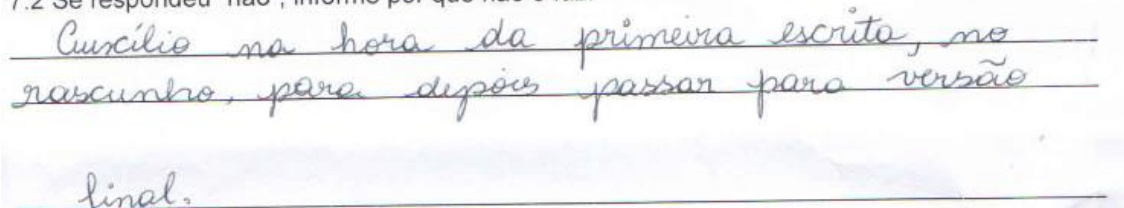 7.2 Se respondeu "não", informe por que não o faz
Auxílio na hora da primeira escrita, no
rascunho, para depois passar para versão
final.